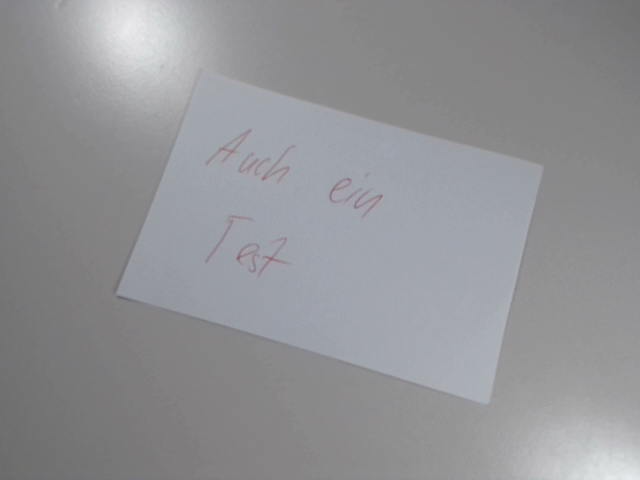 Auch ein
Test